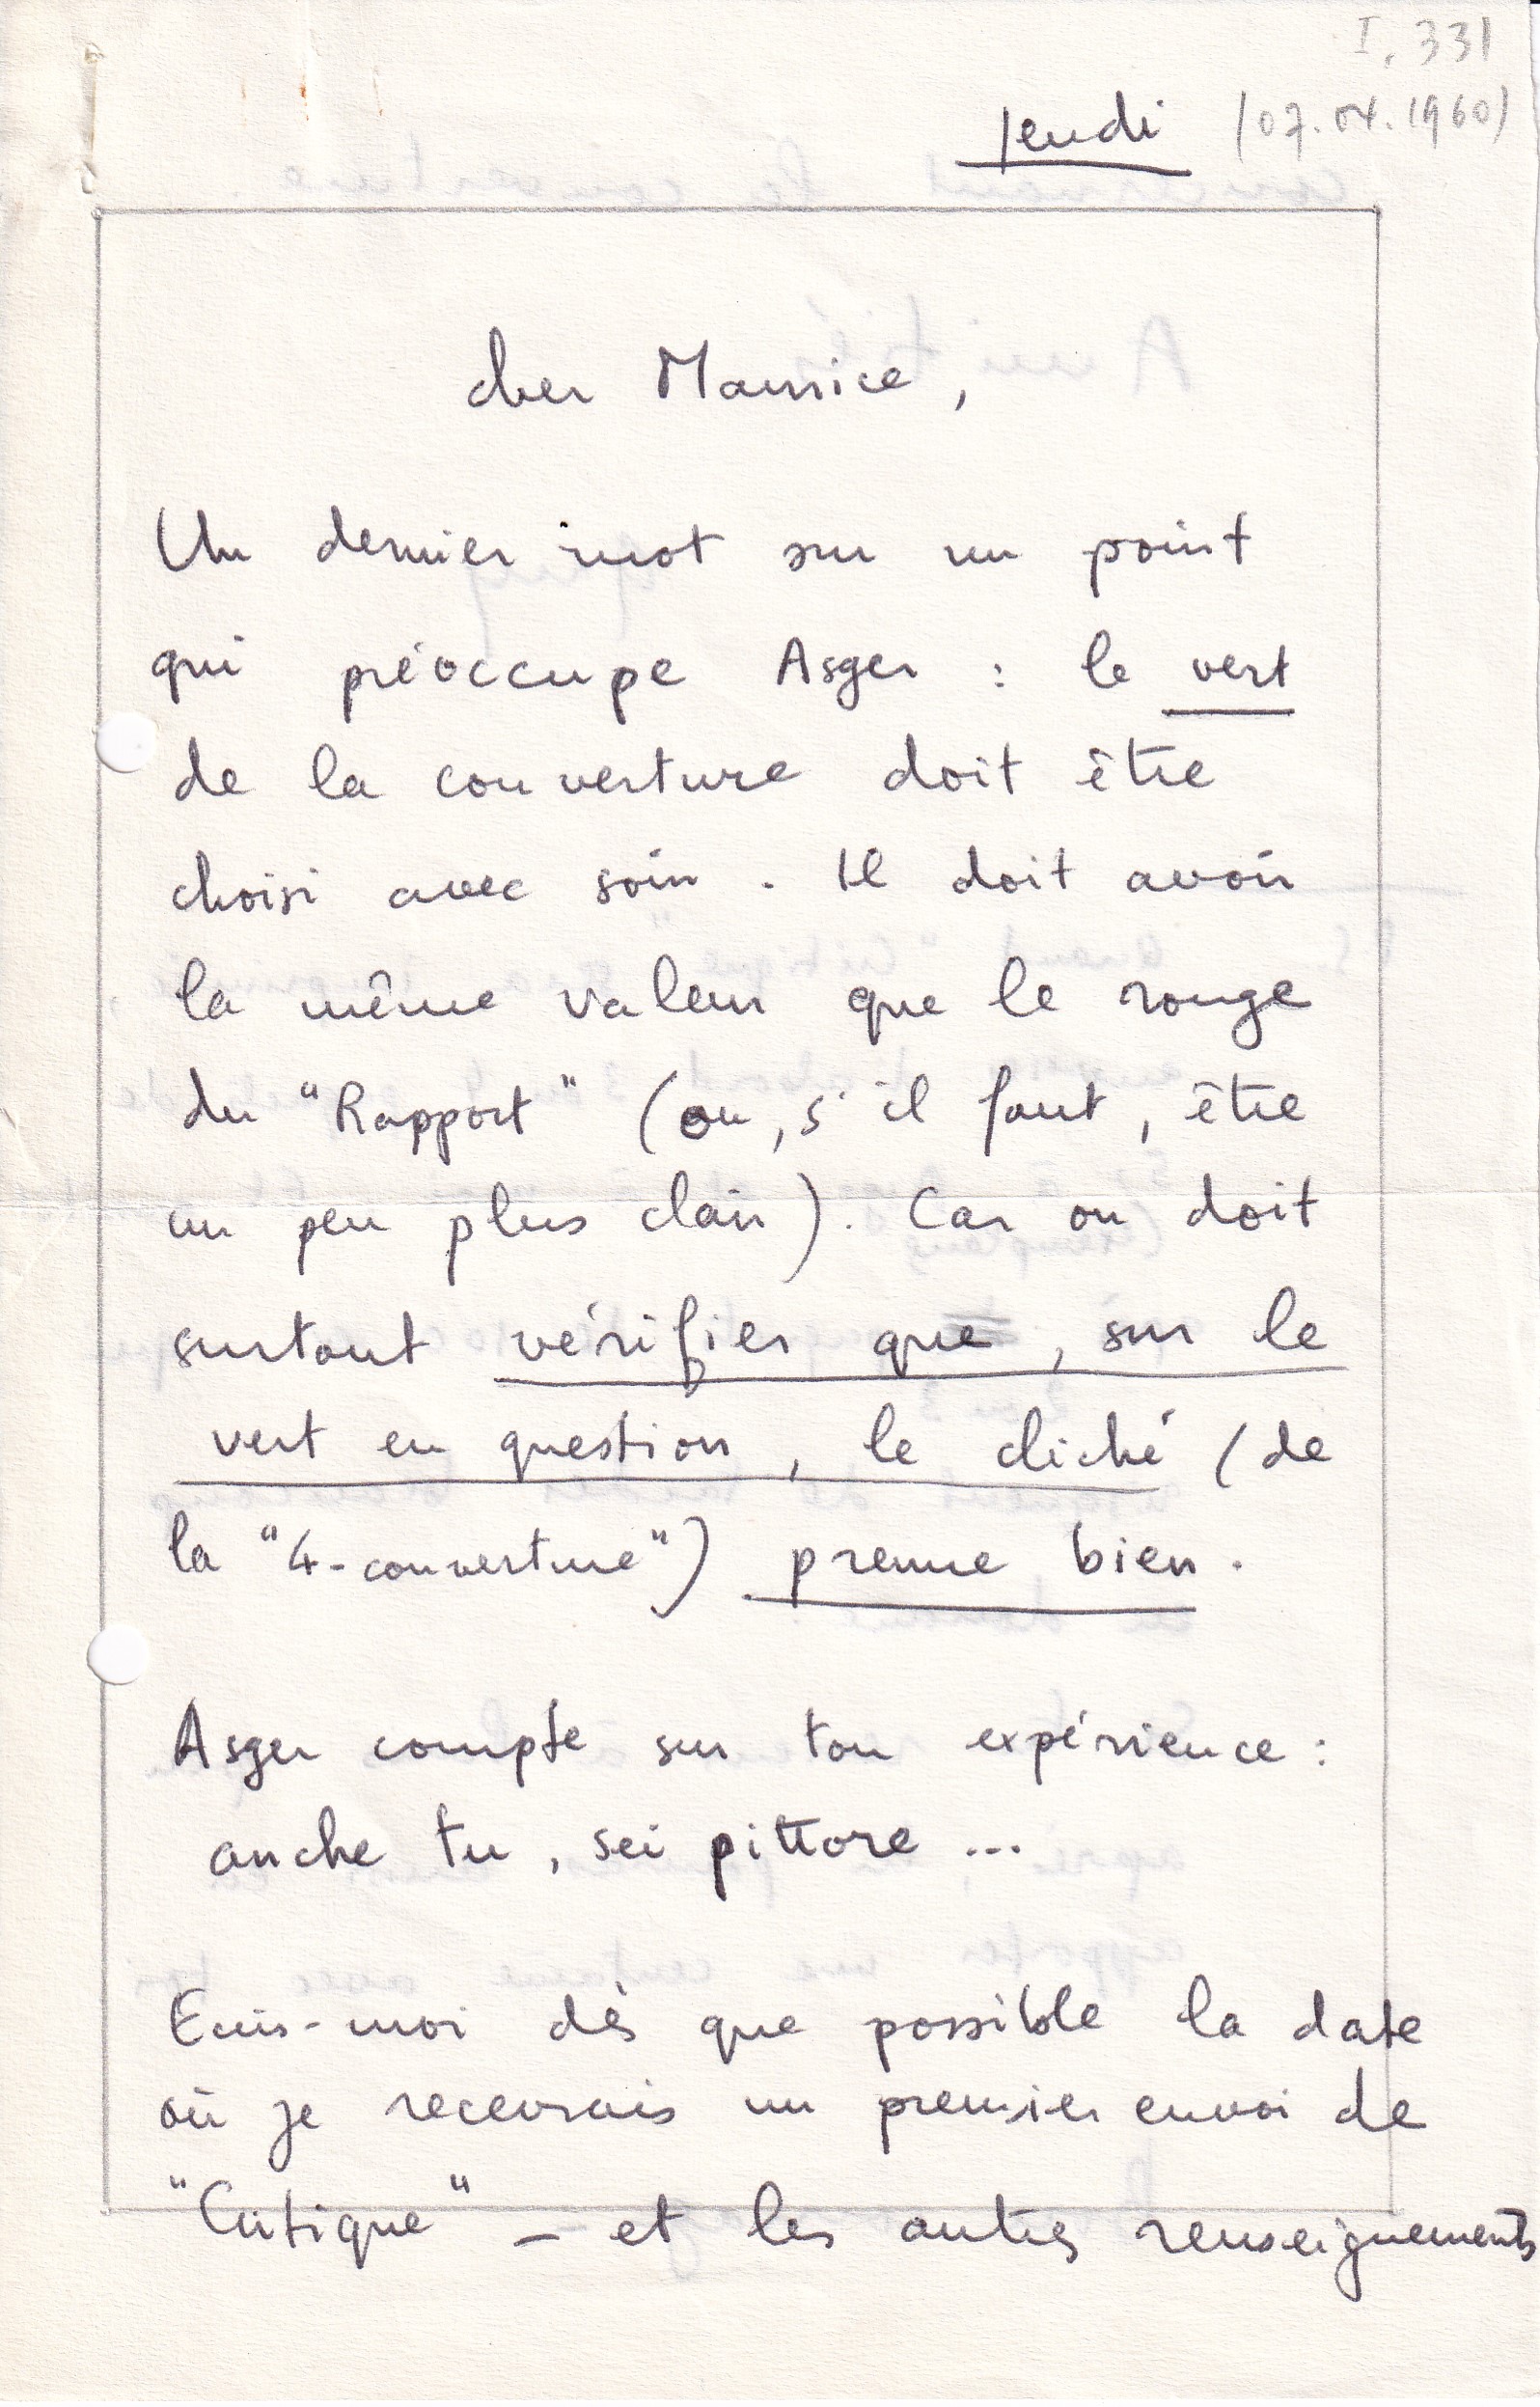 I. 331
Jeudi (07.04.1960)
cher Maurice,
Un dernier mot sur un point
qui préoccupe Asger : le vert
de la couverture doit être
choisi avec soin. Il doit avoir
la même valeur que le rouge
du "Rapport" (ou, s'il faut, être
un peu plus clair). Car on doit
surtout vérifier que, sur le
vert en question, le cliché (de
la "4-couverture") prenne bien.
Asger compte sur ton expérience :
anche tu, sei pittore ...
Ecris-moi dès que possible la date
où je recevrais un premier envoi de
"Critique" – et les autres renseignements